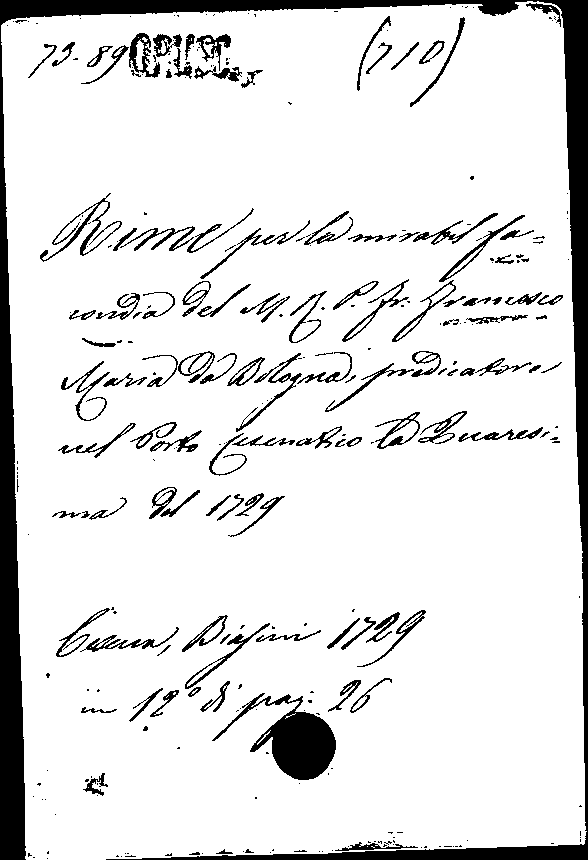 73-89 OPUSC. (710)
Rime per la mirabil fa=
condia del M. R. P. Fr. Francesco
Maria da Bologna, predicatore
nel Porto Cesenatico la Quaresi=
ma del 1729
Cesena, Biasini 1729
in 12º di pag. 26